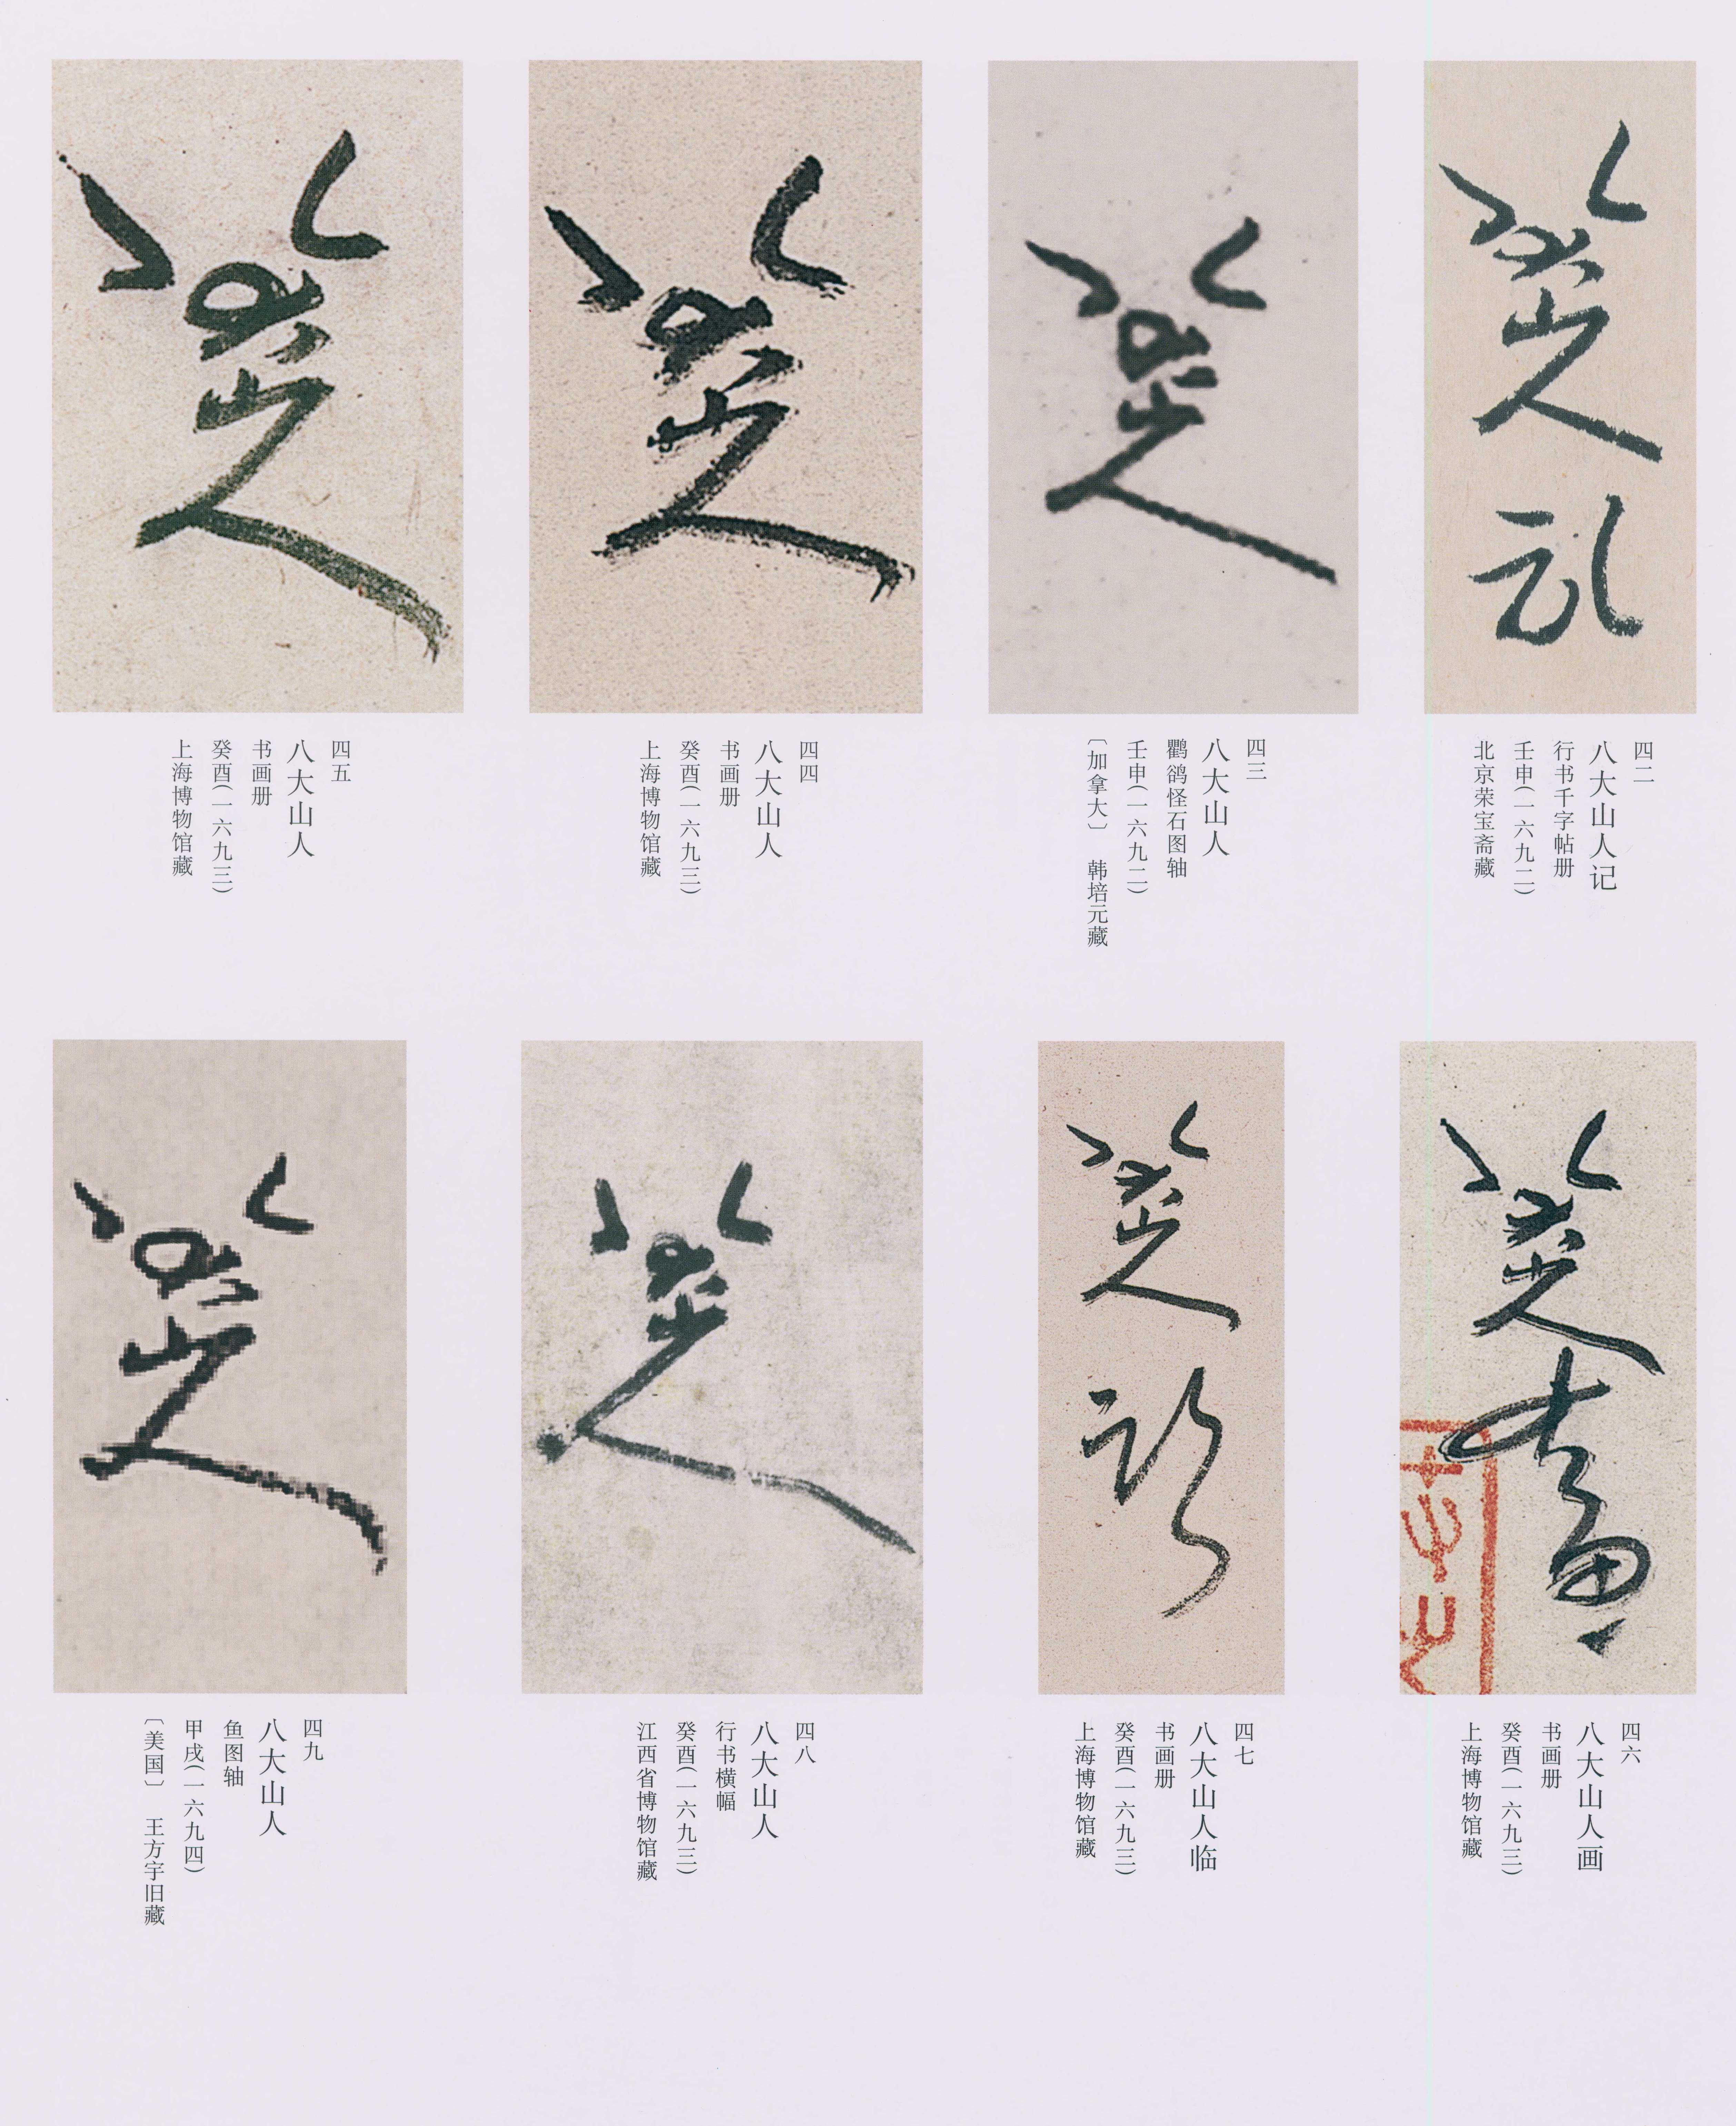 八大山人记
四二
八大山人记
行书千字帖册
壬申(一六九二)
北京荣宝斋藏
八大山人
四三
八大山人
鸜鹆怪石图轴
壬申(一六九二)
〔加拿大〕 韩培元藏
八大山人
四四
八大山人
书画册
癸酉(一六九三)
上海博物馆藏
八大山人
四五
八大山人
书画册
癸酉(一六九三)
上海博物馆藏
八大山人画
四六
八大山人画
书画册
癸酉(一六九三)
上海博物馆藏
八大山人临
四七
八大山人临
书画册
癸酉(一六九三)
上海博物馆藏
八大山人
四八
八大山人
行书横幅
癸酉(一六九三)
江西省博物馆藏
八大山人
四九
八大山人
鱼图轴
甲戌(一六九四)
〔美国〕 王方宇旧藏